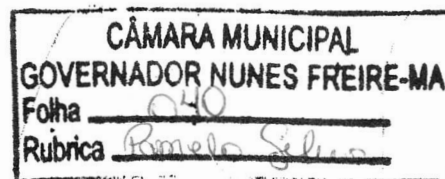 CÂMARA MUNICIPAL
GOVERNADOR NUNES FREIRE-MA
Folha 040
Rubrica Pamela Silva